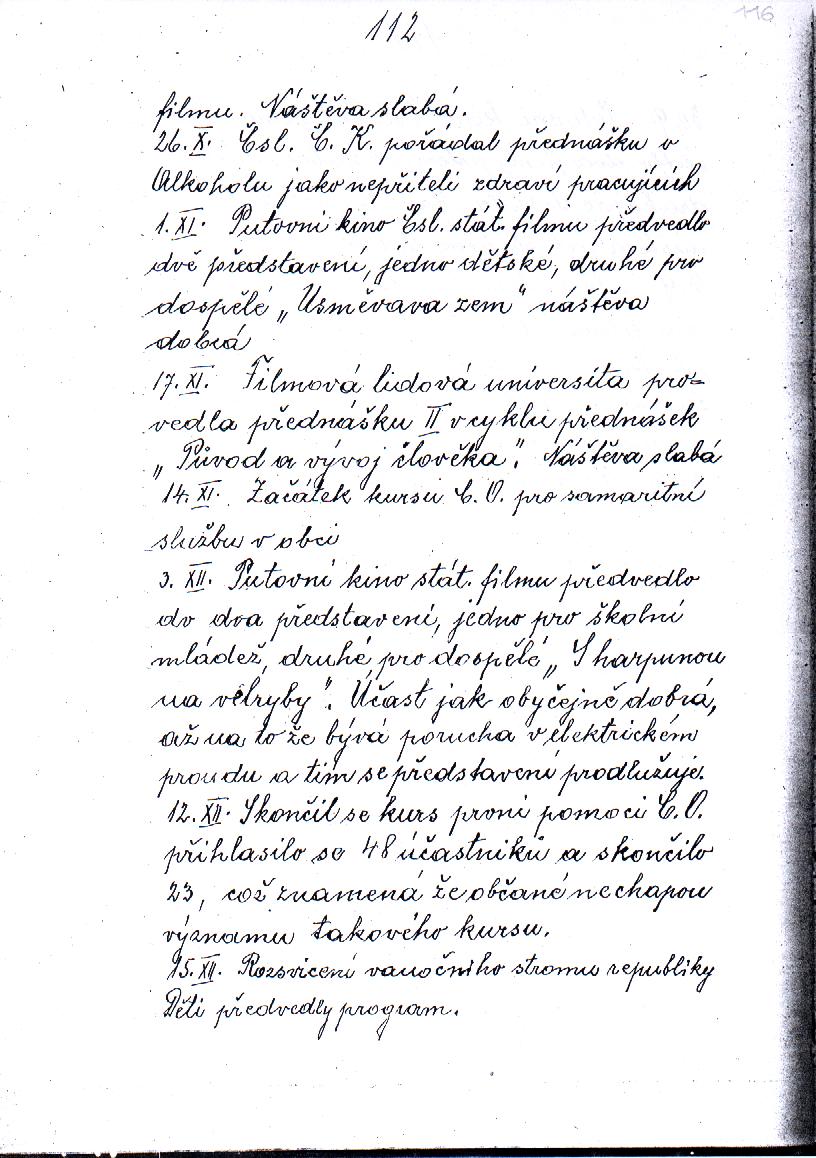 112
116
filmu. Náštěva slabá.
26.X. Čsl. Č. K. pořádal přednášku o
Alkoholu jako nepříteli zdraví pracujících
1.XI. Putovní kino Čsl. stát. filmu předvedlo
dvě představení, jedno dětské, druhé pro
dospělé „Usměvava zem" náštěva
dobrá
17.XI. Filmová lidová universita pro=
vedla přednášku II v cyklu přednášek
„Původ a vývoj člověka". Náštěva slabá
14.XI. Začátek kursu C.O. pro samaritní
službu v obci
3. XII. Putovní kino stát. filmu předvedlo
do dva představení, jedno pro školní
mládež, druhé pro dospělé „S harpunou
na velryby". Účast jak obyčejně dobrá,
až na to že bývá porucha v elektrickém
proudu a tím se představení prodlužuje.
12.XII. Skončil se kurs první pomoci C.O.
přihlasilo se 48 účastníků a skončilo
23, což znamená že občané nechapou
významu takového kursu.
15.XII. Rozsvícení vanočního stromu republiky
Děti předvedly program.